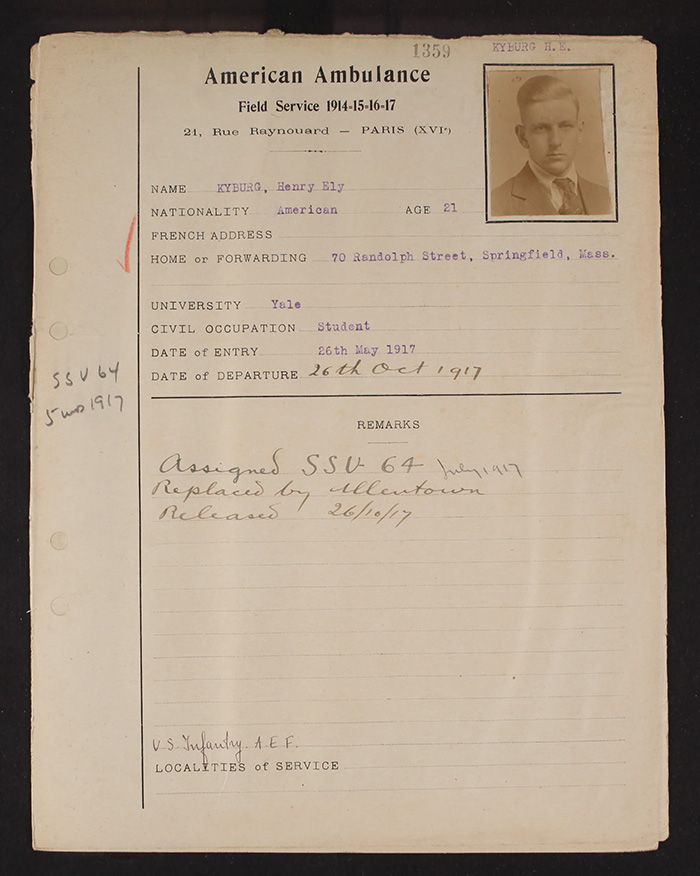 1359 KYBURG H.E.
American Ambulance
Field Service 1914-15-16-17
21, Rue Raynouard — PARIS (XVIe)
NAME KYBURG, Henry Ely
NATIONALITY American AGE 21
FRENCH ADDRESS
HOME or FORWARDING 70 Randolph Street, Springfield, Mass.
UNIVERSITY Yale
CIVIL OCCUPATION Student
DATE of ENTRY 26th May 1917
DATE of DEPARTURE 26th Oct 1917
SSU 64
5 mos 1917
REMARKS
Assigned SSU 64 July 1917
Replaced by Allentown
Released 26/10/17
U.S. Infantry A.E.F.
LOCALITIES of SERVICE